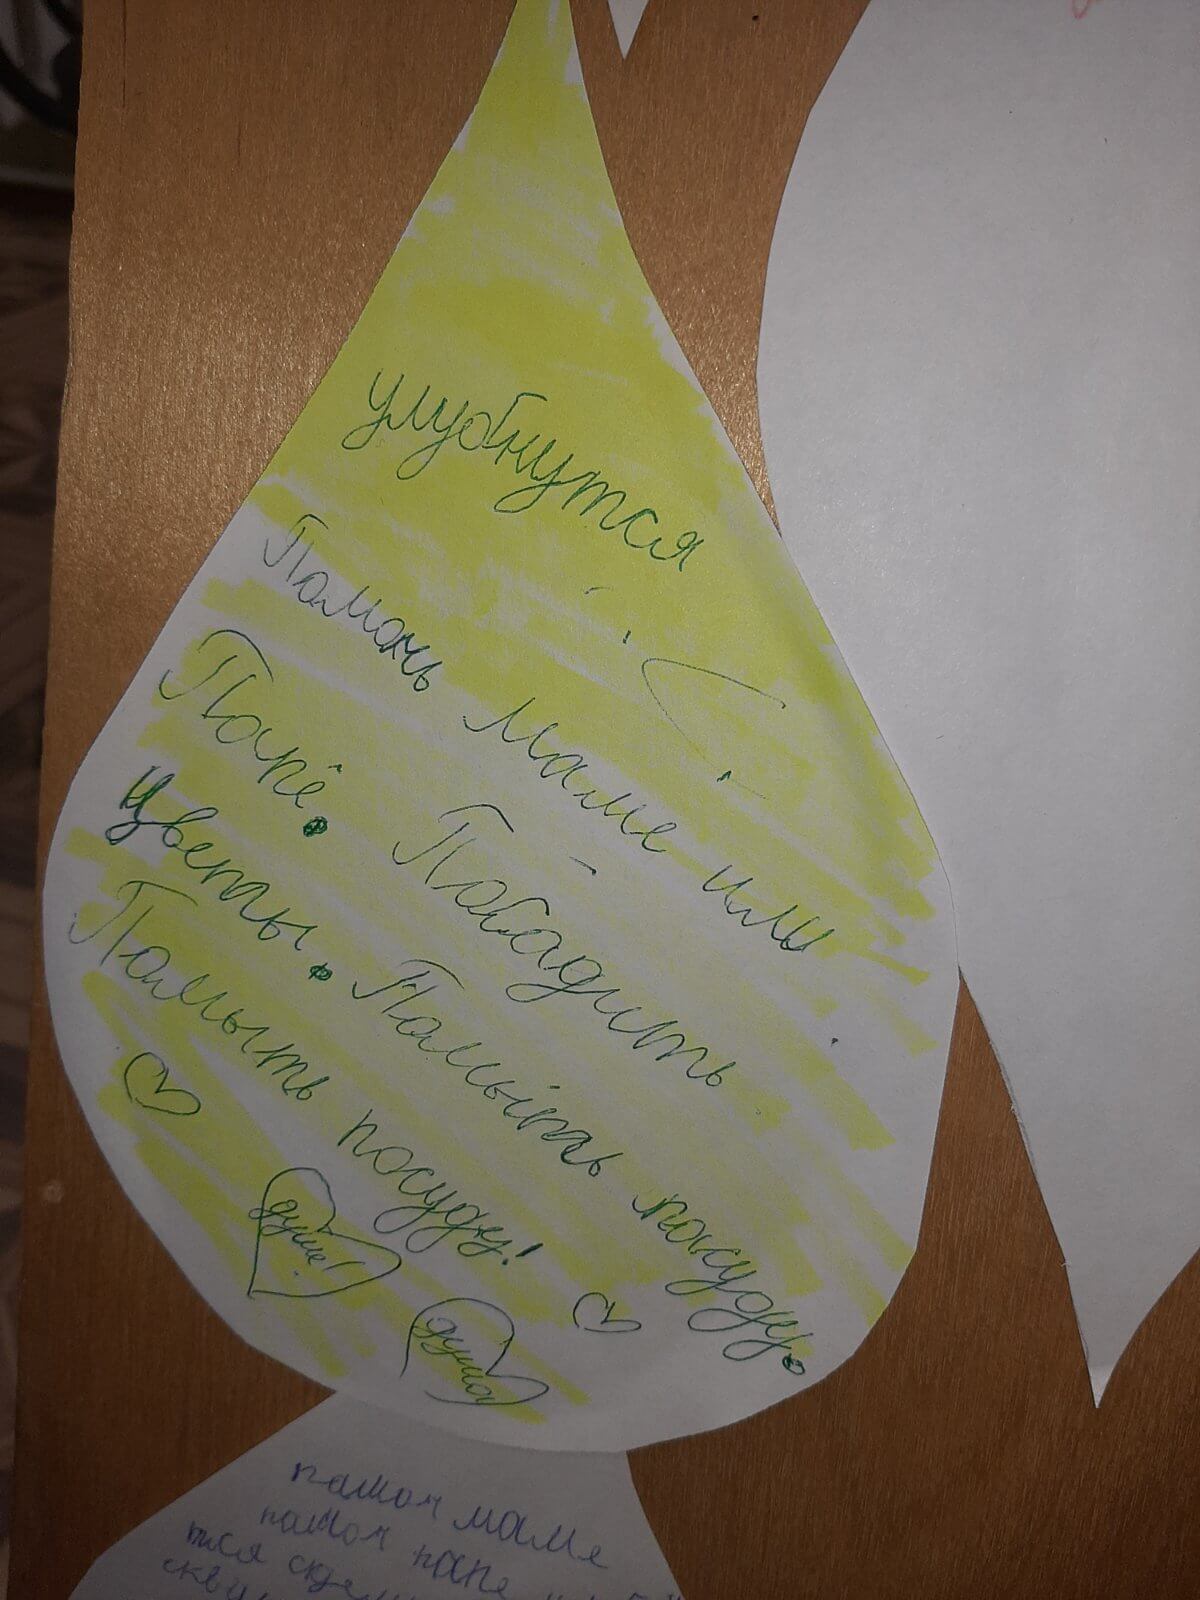 улубнутся
Памочь маме или
Папе. Побадить
цветы. Памыть пасуду.
Памыть посуду!
душе!
душа
памоч маме
памоч папе
тися сдели